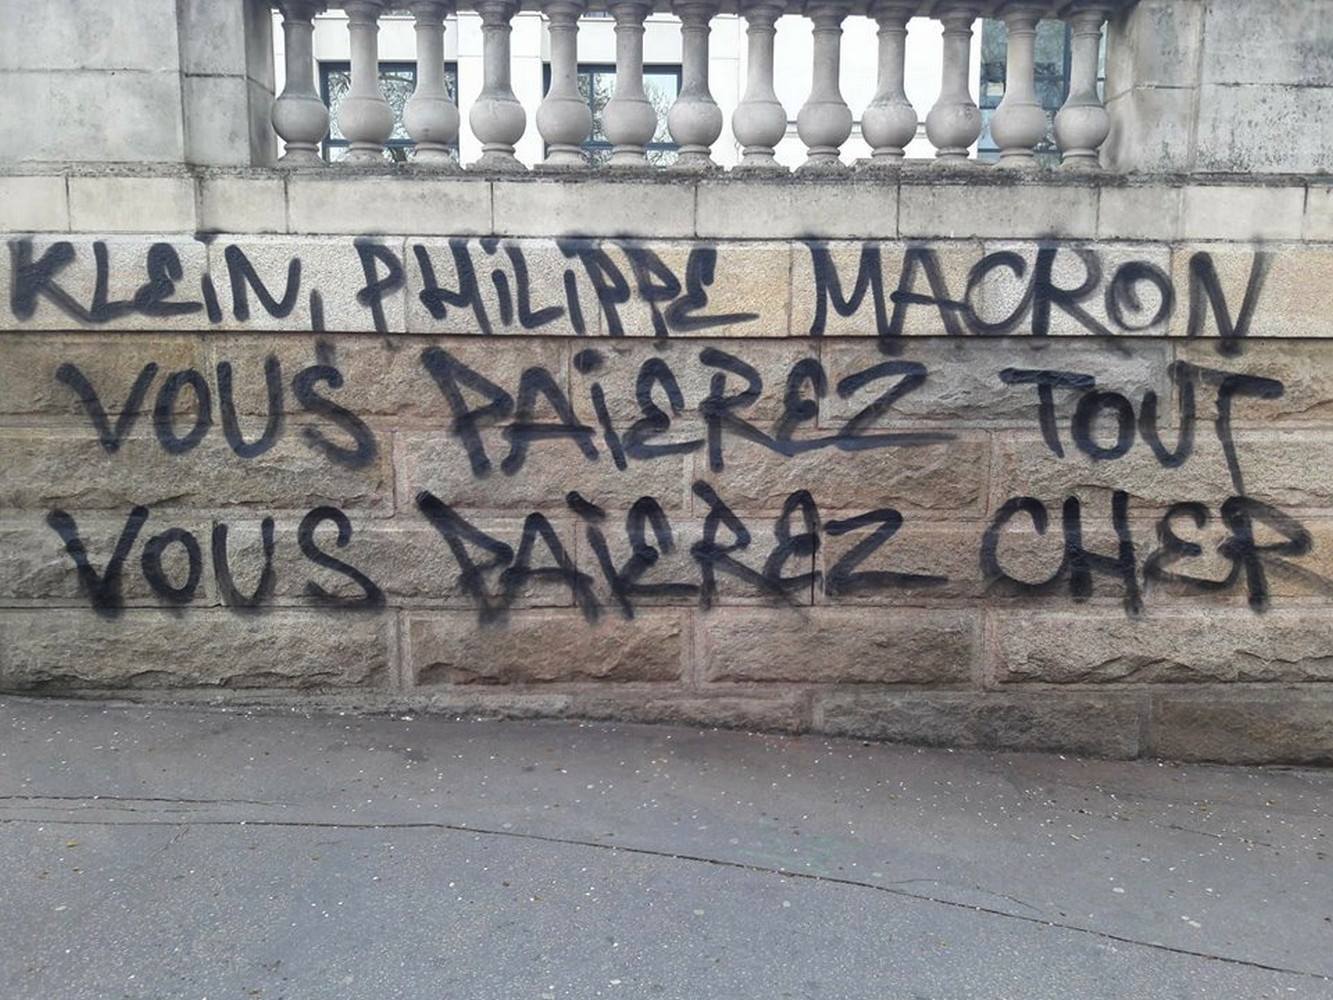 KLEiN, PHiLiPPE MACRON
VOUS PAiEREZ TOUT
VOUS PAiEREZ CHER